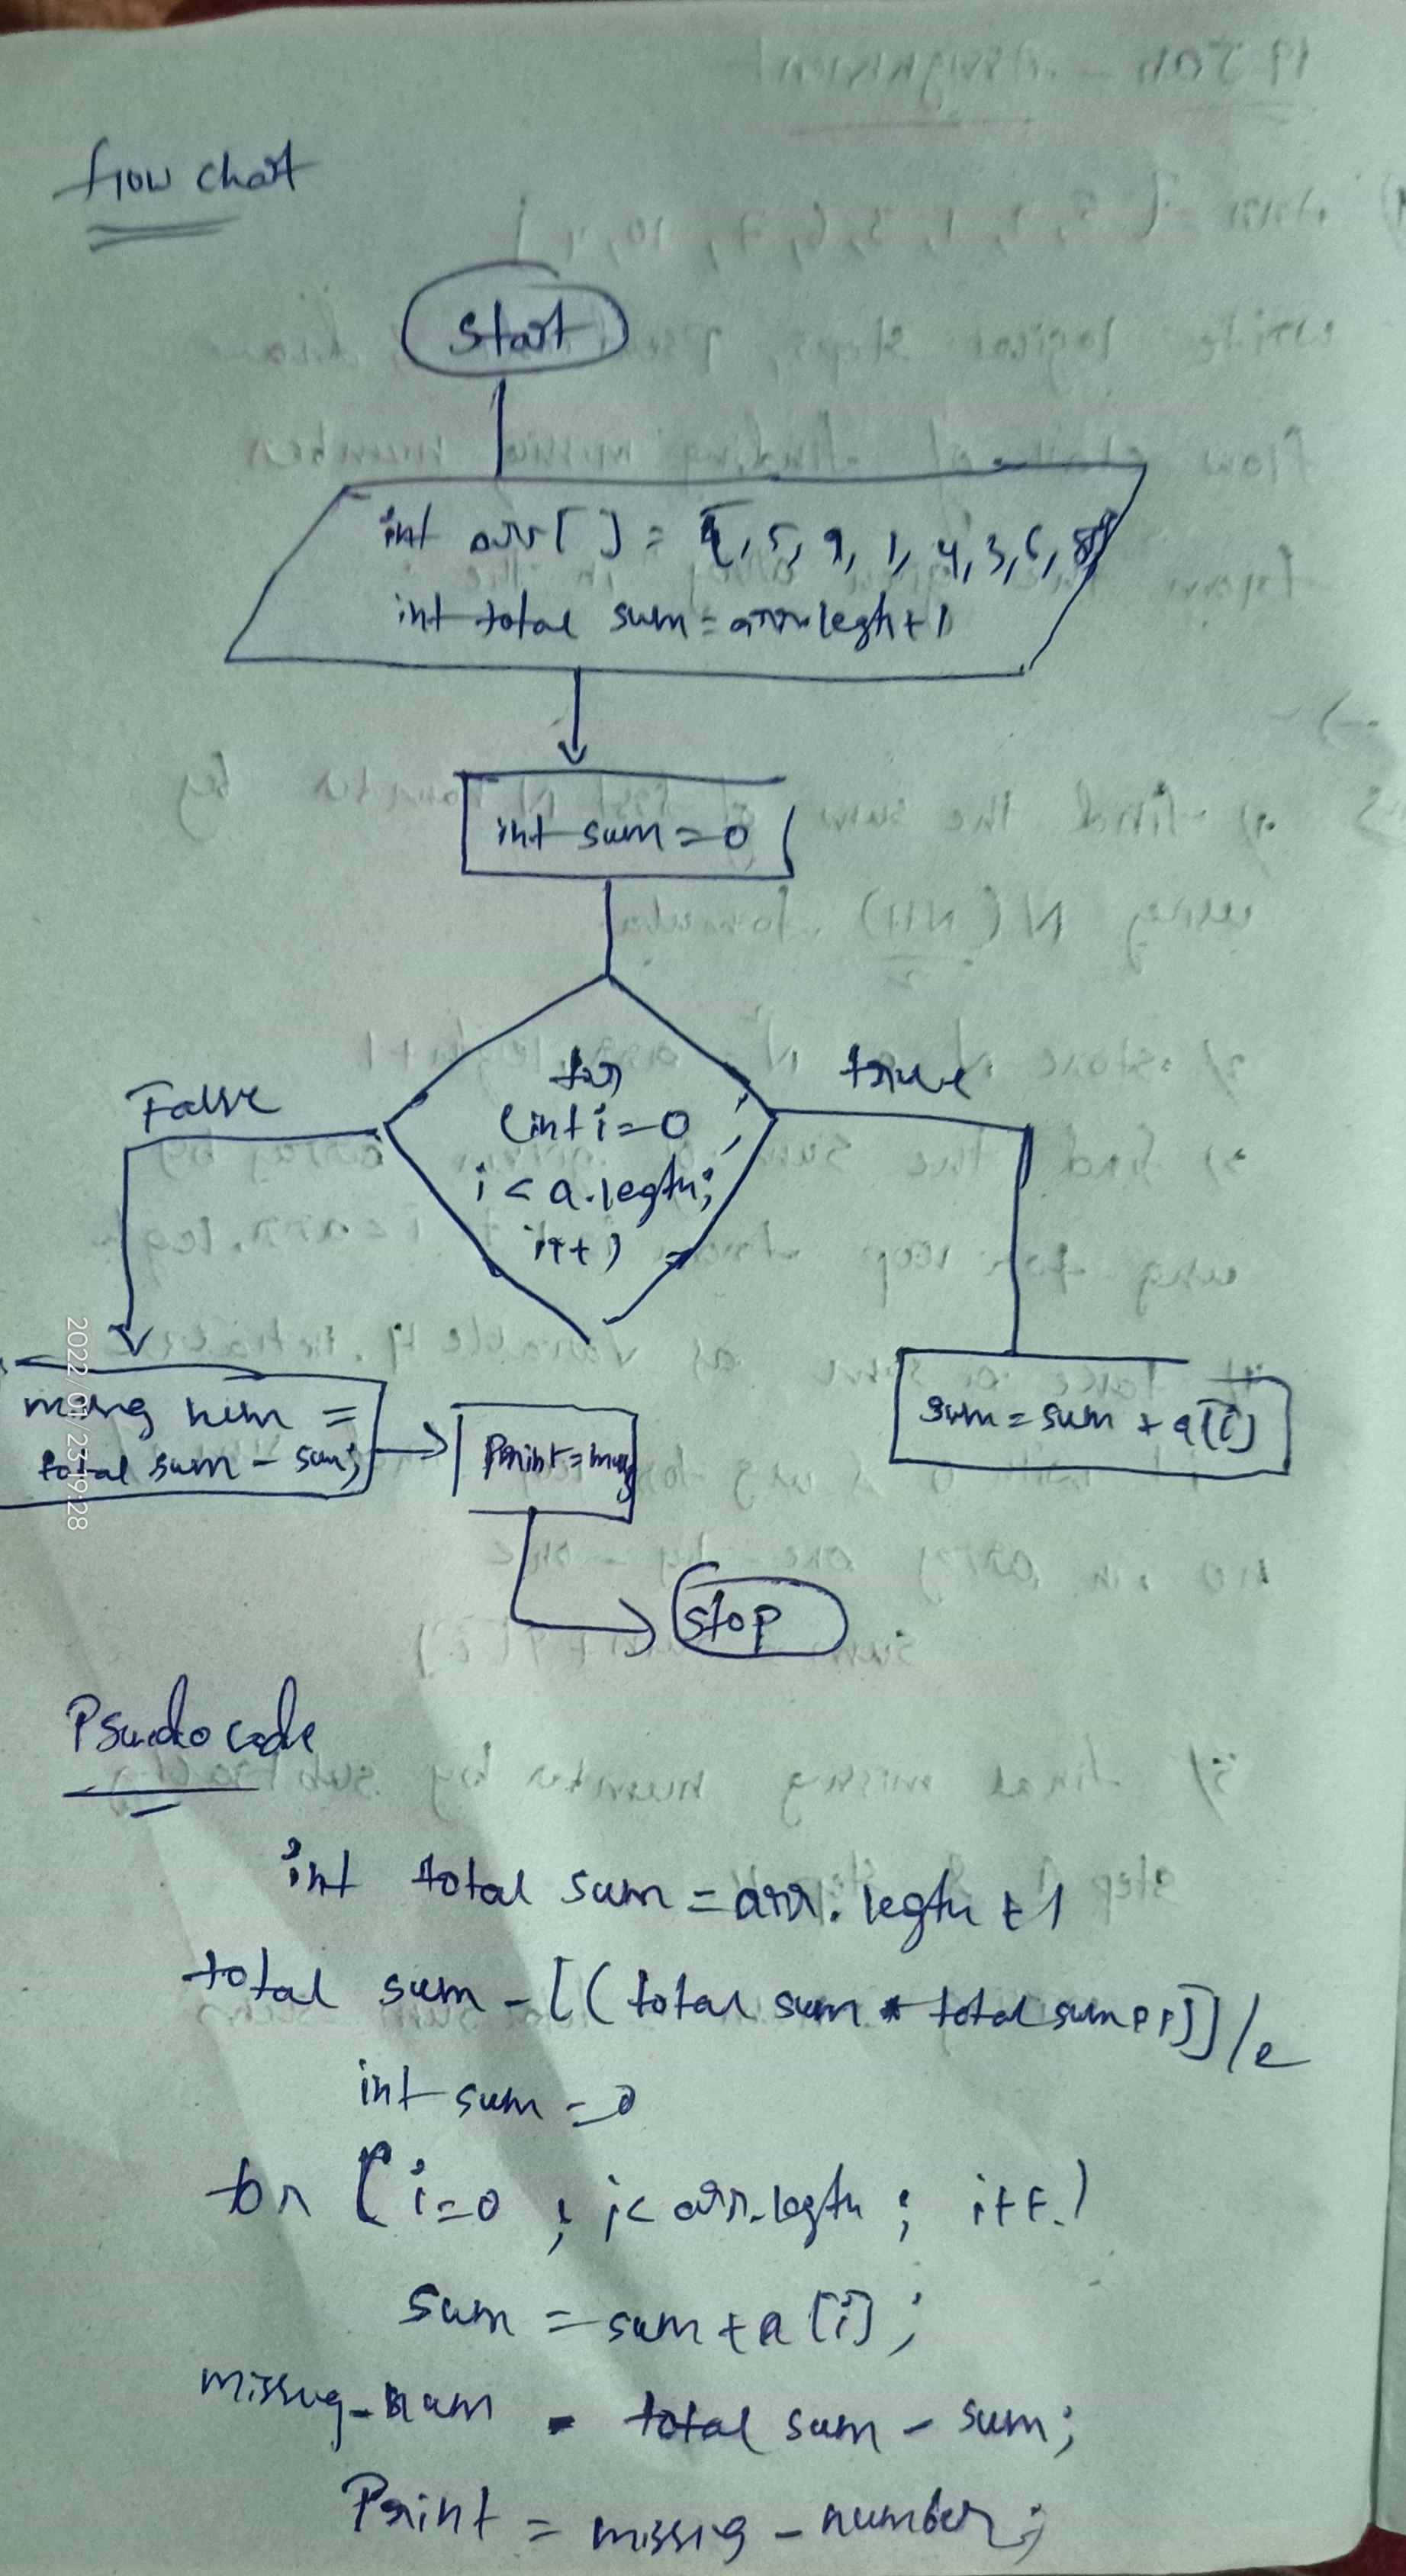 flow chart
Start
int arr[ ] = { , 5, 9, 1, 4, 3, 6, 8}
int total sum = arr.legh + 1
int sum = 0
for
(int i = 0 ;
i < a.legth;
i++)
False
true
num =
total sum - sum;
Print =
sum = sum + a[i]
stop
2022/01/23 19:28
Psudo code
int total sum = arr. legth + 1
total sum = [(total sum * total sum++)]/2
int sum = 0
for (i=0 ; i< arr.legth ; i++)
sum = sum + a[i];
missig_num = total sum - sum;
Print = missig - number;